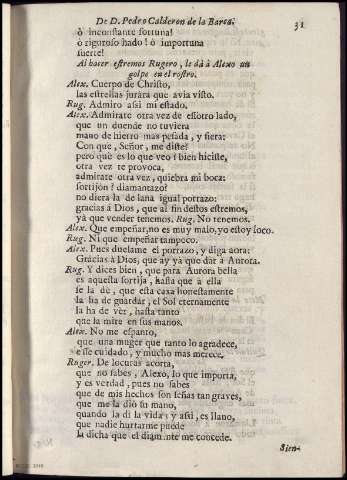 De D. Pedro Calderon de la Barca.
31
ò inconstante fortuna!
ò riguroso hado! ò importuna
suerte!
Al hacer estremos Rugero, le dà à Alexo un
golpe en el rostro.
Alex. Cuerpo de Christo,
las estrellas jurara que avia visto.
Rug. Admiro assi mi estado.
Alex. Admirate otra vez de essotro lado,
que un duende no tuviera
mano de hierro mas pesada, y fiera:
Con que, Señor, me diste?
pero què es lo que veo! bien hiciste,
otra vez te provoca,
admirate otra vez, quiebra mi boca:
sortijon! diamantazo!
no diera la de lana igual porrazo:
gracias à Dios, que al fin destos estremos,
yà que vender tenemos. Rug. No tenemos.
Alex. Que empeñar, no es muy malo, yo estoy loco.
Rug. Ni que empeñar tampoco.
Alex. Pues duelame el porrazo, y diga aora:
Gracias à Dios, que ay ya que dar à Aurora.
Rug. Y dices bien, que para Aurora bella
es aquesta sortija, hasta que à ella
se la dè, que esta caxa honestamente
la ha de guardar, el Sol eternamente
la ha de vèr, hasta tanto
que la mire en sus manos.
Alex. No me espanto,
que una muger que tanto lo agradece,
esse cuidado, y mucho mas merece.
Ruger. De locuras acorta,
que no sabes, Alexo, lo que importa,
y es verdad, pues no sabes
que de mis hechos son señas tan graves,
que me la diò su mano,
quando la dì la vida: y assi, es llano,
que nadie hurtarme puede
la dicha que el diamante me concede.
Sien-